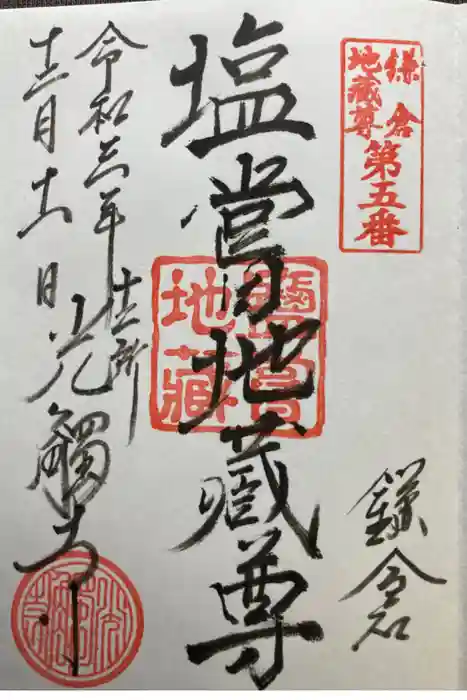 鎌倉
地蔵尊
第五番
鎌倉
塩嘗地蔵尊
鹽嘗
地藏
令和三年
十二月十二日
十二所
光觸寺